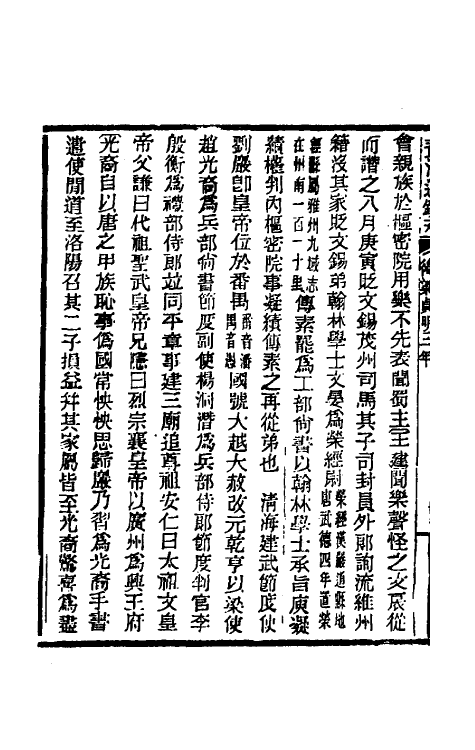 會親族於樞密院用樂不先表聞蜀主王建聞樂聲怪之文扆從
而譖之八月庚寅貶文錫茂州司馬其子司封員外郎詢流維州
籍沒其家貶文錫弟翰林學士文晏爲榮經尉榮經漢嚴道縣地唐武德四年置榮
經縣屬雅州九域志在州南一百一十里傳素罷爲工部尚書以翰林學士承旨庾凝
績權判內樞密院事凝績傳素之再從弟也　清海建武節度使
劉巖卽皇帝位於番禺番音潘禺音愚國號大越大赦改元乾亨以梁使
趙光裔爲兵部尚書節度副使楊洞潛爲兵部侍郎節度判官李
殷衡爲禮部侍郎並同平章事建三廟追尊祖安仁曰太祖文皇
帝父謙曰代祖聖武皇帝兄隱曰烈宗襄皇帝以廣州爲興王府
光裔自以唐之甲族恥事僞國常怏怏思歸巖乃習爲光裔手書
遣使間道至洛陽召其二子損益并其家屬皆至光裔驚喜爲盡